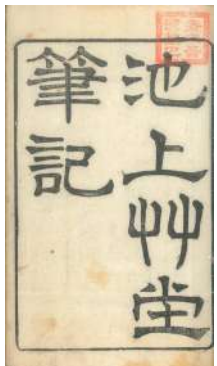 池上艸堂
筆記